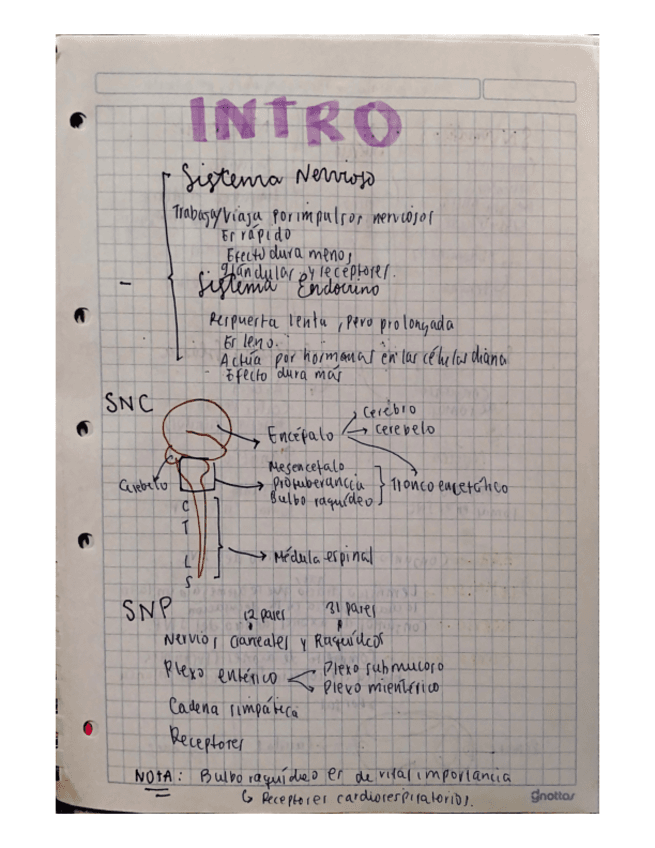 INTRO
Sistema Nervioso
Trabaja/Viaja por impulsos nerviosos
Es rápido
Efecto dura menos
glándulas y receptores.
Sistema Endocrino
Respuesta lenta, pero prolongada
Es leno.
Actúa por hormonas en las células diana
Efecto dura más
SNC
Cerebro
Encéfalo
cerebelo
Cerebelo
Mesencefalo
Protuberancia
Bulbo raquídeo
Tronco encefálico
C
T
L
S
Médula espinal
SNP
12 pares
31 pares
Nervios Craneales y Raquídeos
Plexo entérico
Plexo submucoso
Plexo mientérico
Cadena simpática
Receptores
NOTA: Bulbo raquídeo es de vital importancia
Receptores cardiorespiratorios.
gnottas